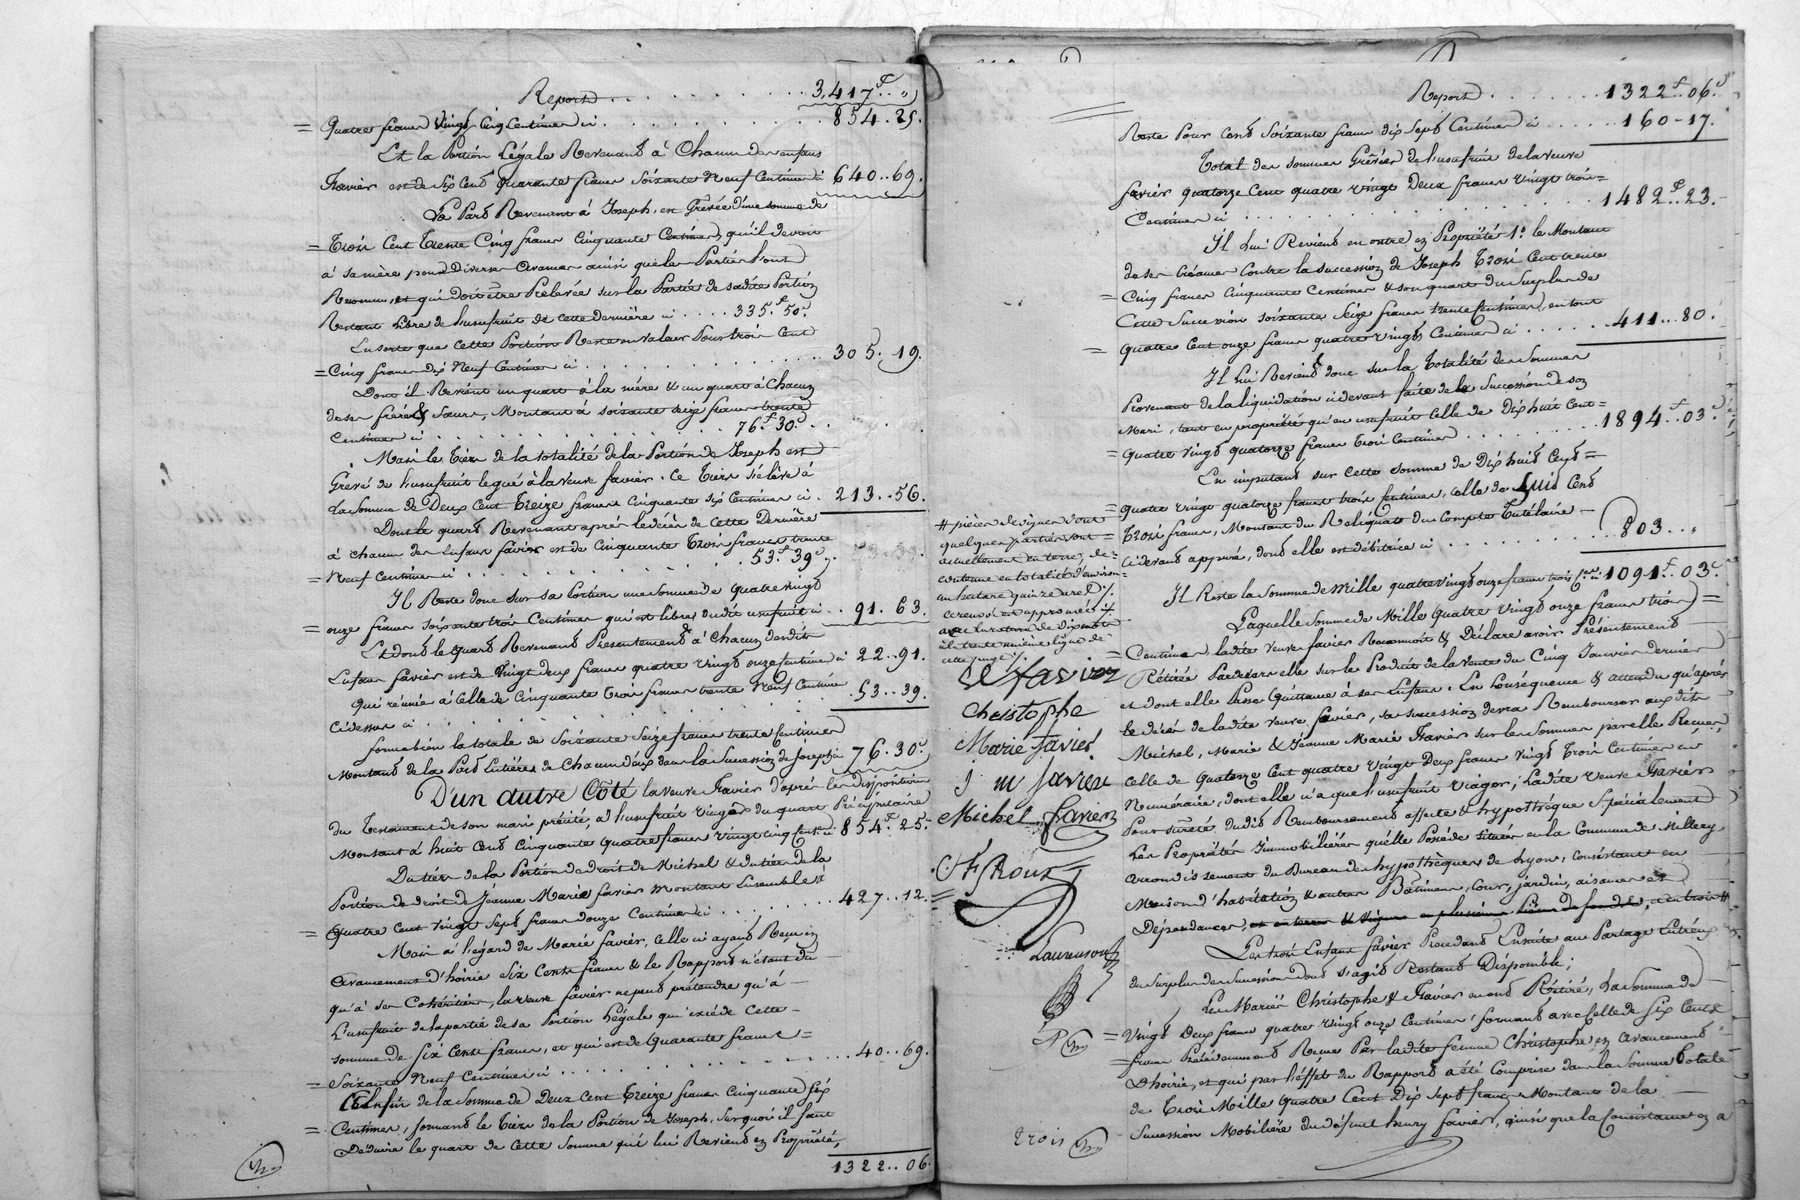 Report . . . . . . . . . 3,417f.. "
= quatre francs vingt cinq Centimes ci . . . . . . . . . 854..25.
Et la Portion Légale Revenant à Chacun des enfans
favier est de Six Cent quarante francs Soixante Neuf Centimes ci 640..69.
La Part Revenant à Joseph, est Grevée d'une somme de
= Trois Cent Trente Cinq francs Cinquante Centimes, qu'il devoit
à sa mère pour Diverses avances ainsi que les Parties l'ont
Reconnu, et qui doit être Prélevée sur la Partie de sadite Portion
Restant libre de l'usufruit de cette dernière ci . . . . 335.f 50.c
Ensorte que cette Portion Reste en valeur Pour trois Cent
= Cinq francs Dix Neuf Centimes ci . . . . . . . . . 305..19.
Dont il Revient un quart à la mère & un quart à Chacun
de ses frères & Sœurs, Montant à soixante seize francs trente
Centimes ci . . . . . . . . . 76.f 30.c
Mais le Tiers de la totalité de la Portion de Joseph est
Grévé de l'usufruit legué à la Veuve favier. Ce Tiers s'élève à
la Somme de Deux Cent Treize francs Cinquante six Centimes ci . 213..56.
Dont le quart Revenant après le décès de cette Dernière
à chacun des Enfans favier est de Cinquante Trois francs trente
= Neuf Centimes ci . . . . . . . . . 53.f 39.c
Il Reste donc sur sa Portion une somme de quatre vingt
= onze francs soixante trois Centimes qui est libre dudit usufruit ci . . 91..63.
Et dont le quart Revenant Présentement à Chacun desdits
Enfans favier est de Vingt deux francs quatre vingt onze Centimes ci 22..91.
Qui réunis à Celle de Cinquante Trois francs trente Neuf Centimes
Cidessus ci . . . . . . . . . 53..39.
forme bien la totale de Soixante Seize francs trente Centimes
Montant de la Part Entière de Chacun d'eux dans la Succession de Joseph ci 76.30.c
D'un autre Côté la veuve Favier d'après les dispositions
du Testament de son mari précité, a l'usufruit Viager du quart Préciputaire
Montant à huit Cent Cinquante quatre francs Vingt Cinq Cent. ci 854.f 25.
Du tiers de la Portion de droit de Michel & du tiers de la
Portion de droit de Jeanne Marie favier montant Ensemble à
= Quatre Cent vingt Sept francs douze Centimes ci . . . . . . 427..12.
Mais à l'égard de Marie favier, celle ci ayant Reçu en
avancement d'hoirie Six Cents francs & le Rapport n'étant dû
qu'à ses Cohéritiers, la veuve favier ne peut prétendre qu'à
l'usufruit de la partie de sa Portion Légale qui excéde Cette
somme de Six Cents francs, et qui est de Quarante francs =
= Soixante Neuf Centimes ci . . . . . . . . . 40..69.
Enfin de la Somme de Deux Cent Treize francs Cinquante Six
= Centimes, formant le Tiers de la Portion de Joseph, Surquoi il faut
Déduire le quart de Cette Somme qui lui Reviend en Propriété,
1322..06.
Report . . . . . . . 1322f..06.c
Reste Pour Cent Soixante francs dix Sept Centimes ci . . . . . 160-17.
Total des sommes Grevées de l'usufruit de la veuve
favier quatorze Cent quatre vingt Deux francs vingt trois =
Centimes ci . . . . . . . . . 1482.f 23.
Il lui Reviend en outre en Propriété 1.o le Montant
de ses Créances Contre la succession de Joseph Trois Cent trente
= Cinq francs Cinquante Centimes & son quart du Surplus de
Cette Succession soixante Seize francs trente Centimes, en tout
= quatre Cent onze francs quatre vingts Centimes ci . . . . . 411..80.
Il lui Reviend donc sur la Totalité des Sommes
Provenant de la liquidation ci devant faite de la Succession de son
Mari, tant en propriété qu'en usufruit Celle de Dix huit Cent =
= quatre vingt quatorze francs Trois Centimes . . . . . . . 1894.f 03.c
En imputant sur cette somme de Dix huit Cent =
= quatre vingt quatorze francs trois Centimes, celle de huit Cent
Trois francs, Montant du Reliquat du Compte Tutélaire
Cidevant appuré, dont elle est débitrice ci . . . . . . . . 803.. "
Il Reste la Somme de Mille quatre vingt onze francs trois Cen. ci 1091.f 03.c
Laquelle Somme de Mille quatre Vingt onze francs trois =
= Centimes ladite Veuve favier Reconnoit & Déclare avoir Présentement
Rétirée Pardevers elle sur le Produit de la vente du Cinq Janvier dernier
et dont elle Passe Quittance à ses Enfans. En Conséquence & attendu qu'après
le décès de ladite veuve favier, sa succession devra Rembourser aux dits
Michel, Marie & Jeanne Marie Favier sur les Sommes par elle Reçues,
Celle de Quatorze Cent quatre vingt Deux francs Vingt Trois Centimes en
Numéraire, dont elle n'a que l'usufruit Viager; Ladite Veuve Favier
Pour sureté dudit Remboursement affecte & hypothéque Spécialement
Les Propriétés Immobilières qu'elle Posséde situées en la Commune de Millery
arrondissement du Bureau des hypothèques de Lyon, consistant en
Maison d'habitation & autres Bâtimens, Cour, jardin, aisances et
Dépendances, et en terres & vignes en plusieurs pièces de fonds, et en trois #
Les trois Enfans favier Procedant Ensuite au Partage Entr'eux
du Surplus de Succession dont s'agit Restant Disponible;
Les Mariés Christophe & Favier en ont Rétiré, La Somme de
= Vingt Deux francs quatre vingt onze Centimes, formant avec Celle de Six Cents
= francs Précédemment Reçue Par ladite femme Christophe en avancement
D'hoirie, et qui par l'effet du Rapport a été Comprise dans la Somme totale
de Trois Mille Quatre Cent Dix Sept francs Montant de la
Succession Mobilière du défunt henry favier, ainsi que la Consistance en a
# pièces de vignes dont
quelques parties sont
actuellement en terres, de
contenue en totalité d'environ
un hectare quinze ares /.
ce renvoi est approuvé #
cette page /.
Ve favier
Christophe
Marie favier
j m favier
Michel favier
C. F. Roux
Laurenson
trois